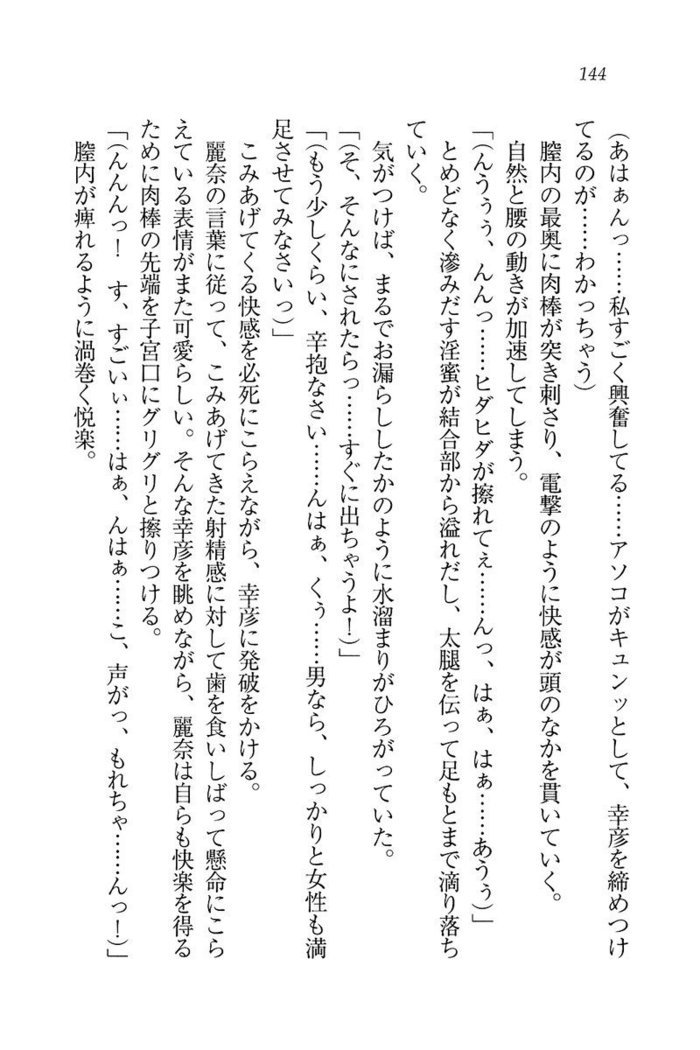 144
(あはぁんっ……私すごく興奮してる……アソコがキュンッとして、幸彦を締めつけ
てるのが……わかっちゃう)
膣内の最奥に肉棒が突き刺さり、電撃のように快感が頭のなかを貫いていく。
自然と腰の動きが加速してしまう。
「(んうぅぅ、んんっ……ヒダヒダが擦れてぇ……んっ、はぁ、はぁ……あうぅ)」
とめどなく滲みだす淫蜜が結合部から溢れだし、太腿を伝って足もとまで滴り落ち
ていく。
気がつけば、まるでお漏らししたかのように水溜まりがひろがっていた。
「(そ、そんなにされたらっ……すぐに出ちゃうよ!)」
「(もう少しくらい、辛抱なさい……んはぁ、くぅ……男なら、しっかりと女性も満
足させてみなさいっ)」
こみあげてくる快感を必死にこらえながら、幸彦に発破をかける。
麗奈の言葉に従って、こみあげてきた射精感に対して歯を食いしばって懸命にこら
えている表情がまた可愛らしい。そんな幸彦を眺めながら、麗奈は自らも快楽を得る
ために肉棒の先端を子宮口にグリグリと擦りつける。
「(んんんっ! す、すごいぃ……はぁ、んはぁ……こ、声がっ、もれちゃ……んっ!)」
膣内が痺れるように渦巻く悦楽。